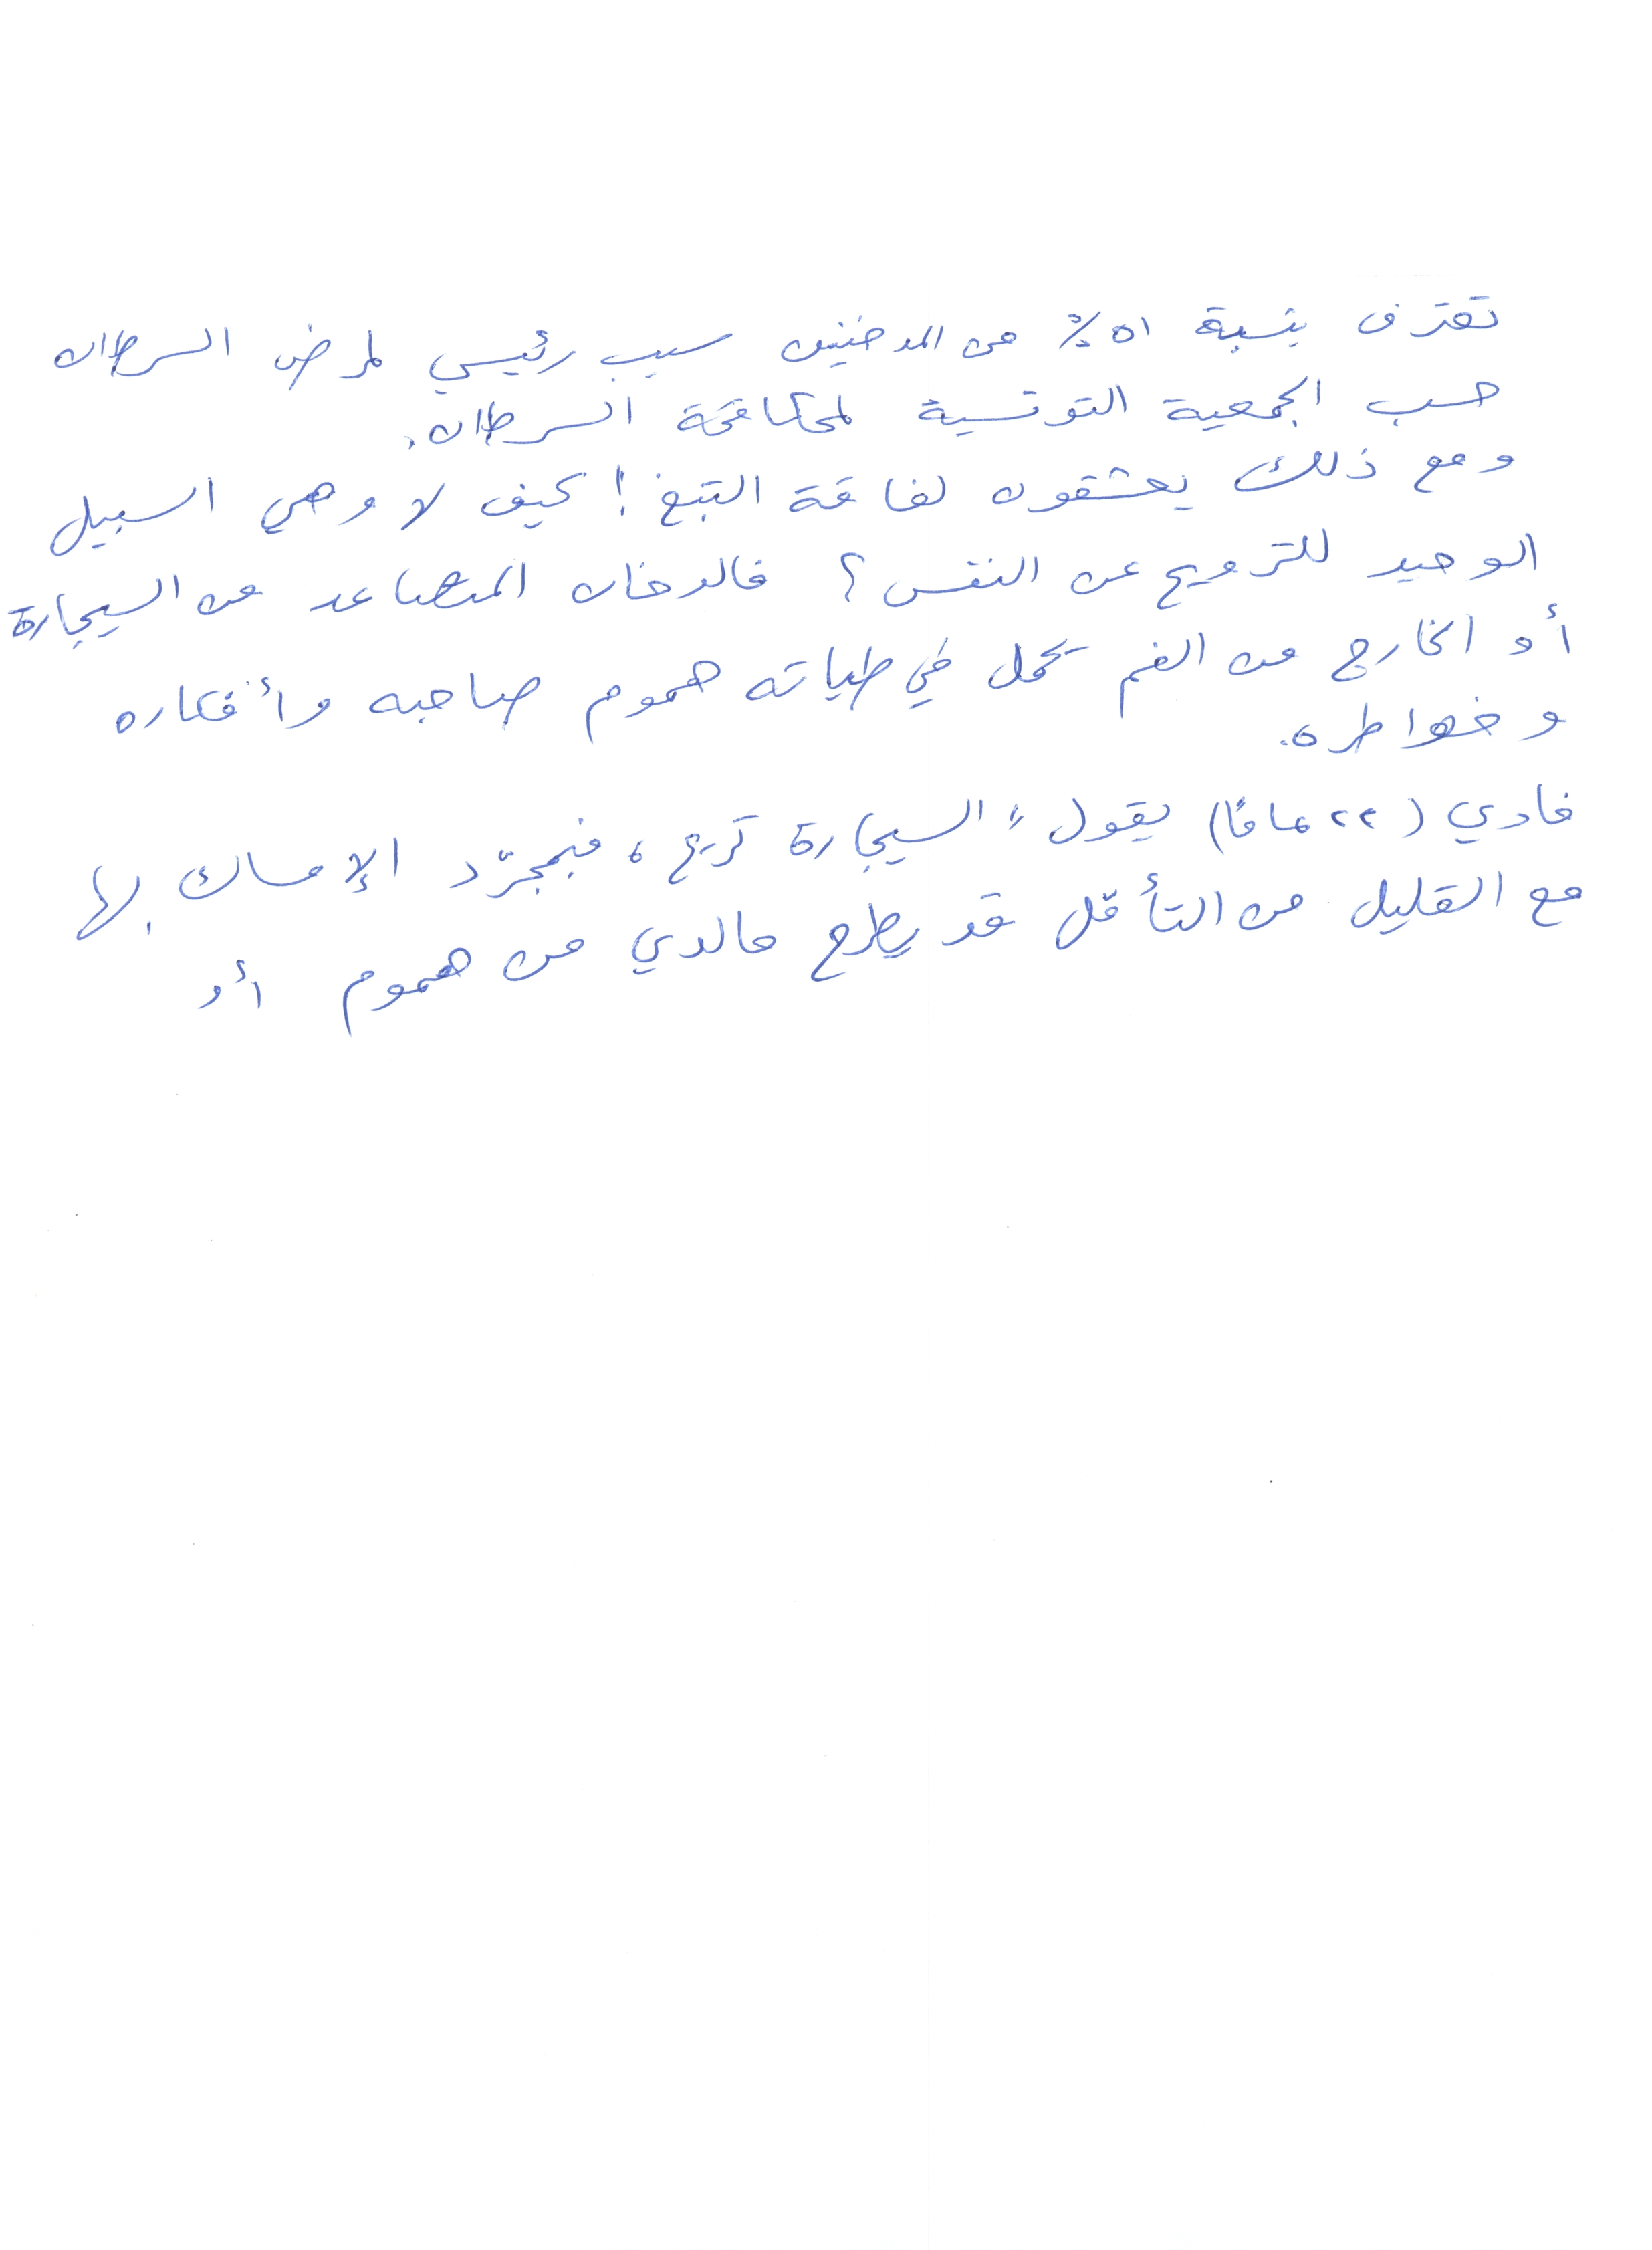 تعترف بنسبة ٥١٪ من المدخنين سبب رئيسي لمرض السرطان
حسب الجمعية التونسية لمكافحة السرطان.
ومع ذلك يعشقون لفافة التبغ! كيف لا وهي السبيل
الوحيد للترويح عن النفس؟ فالدخان المتصاعد من السيجارة
أو الخارج من الفم يحمل في طياته هموم صاحبه وأفكاره
وخواطره.
فادي (٢٢ عامًا) يقول "السيجارة تريح، فبمجرّد الإمساك بها
مع القليل من التأمّل قد يطرح مالدي من هموم أو